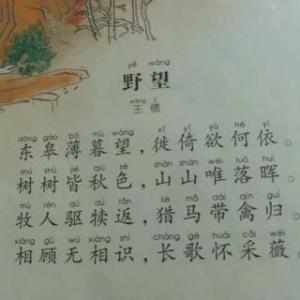 yě wàng
野望
wáng jì
王绩
dōng gāo bó mù wàng xǐ yǐ yù hé yī
东皋薄暮望，徙倚欲何依。
shù shù jiē qiū sè shān shān wéi luò huī
树树皆秋色，山山唯落晖。
mù rén qū dú fǎn liè mǎ dài qín guī
牧人驱犊返，猎马带禽归。
xiāng gù wú xiāng shí cháng gē huái cǎi wēi
相顾无相识，长歌怀采薇。